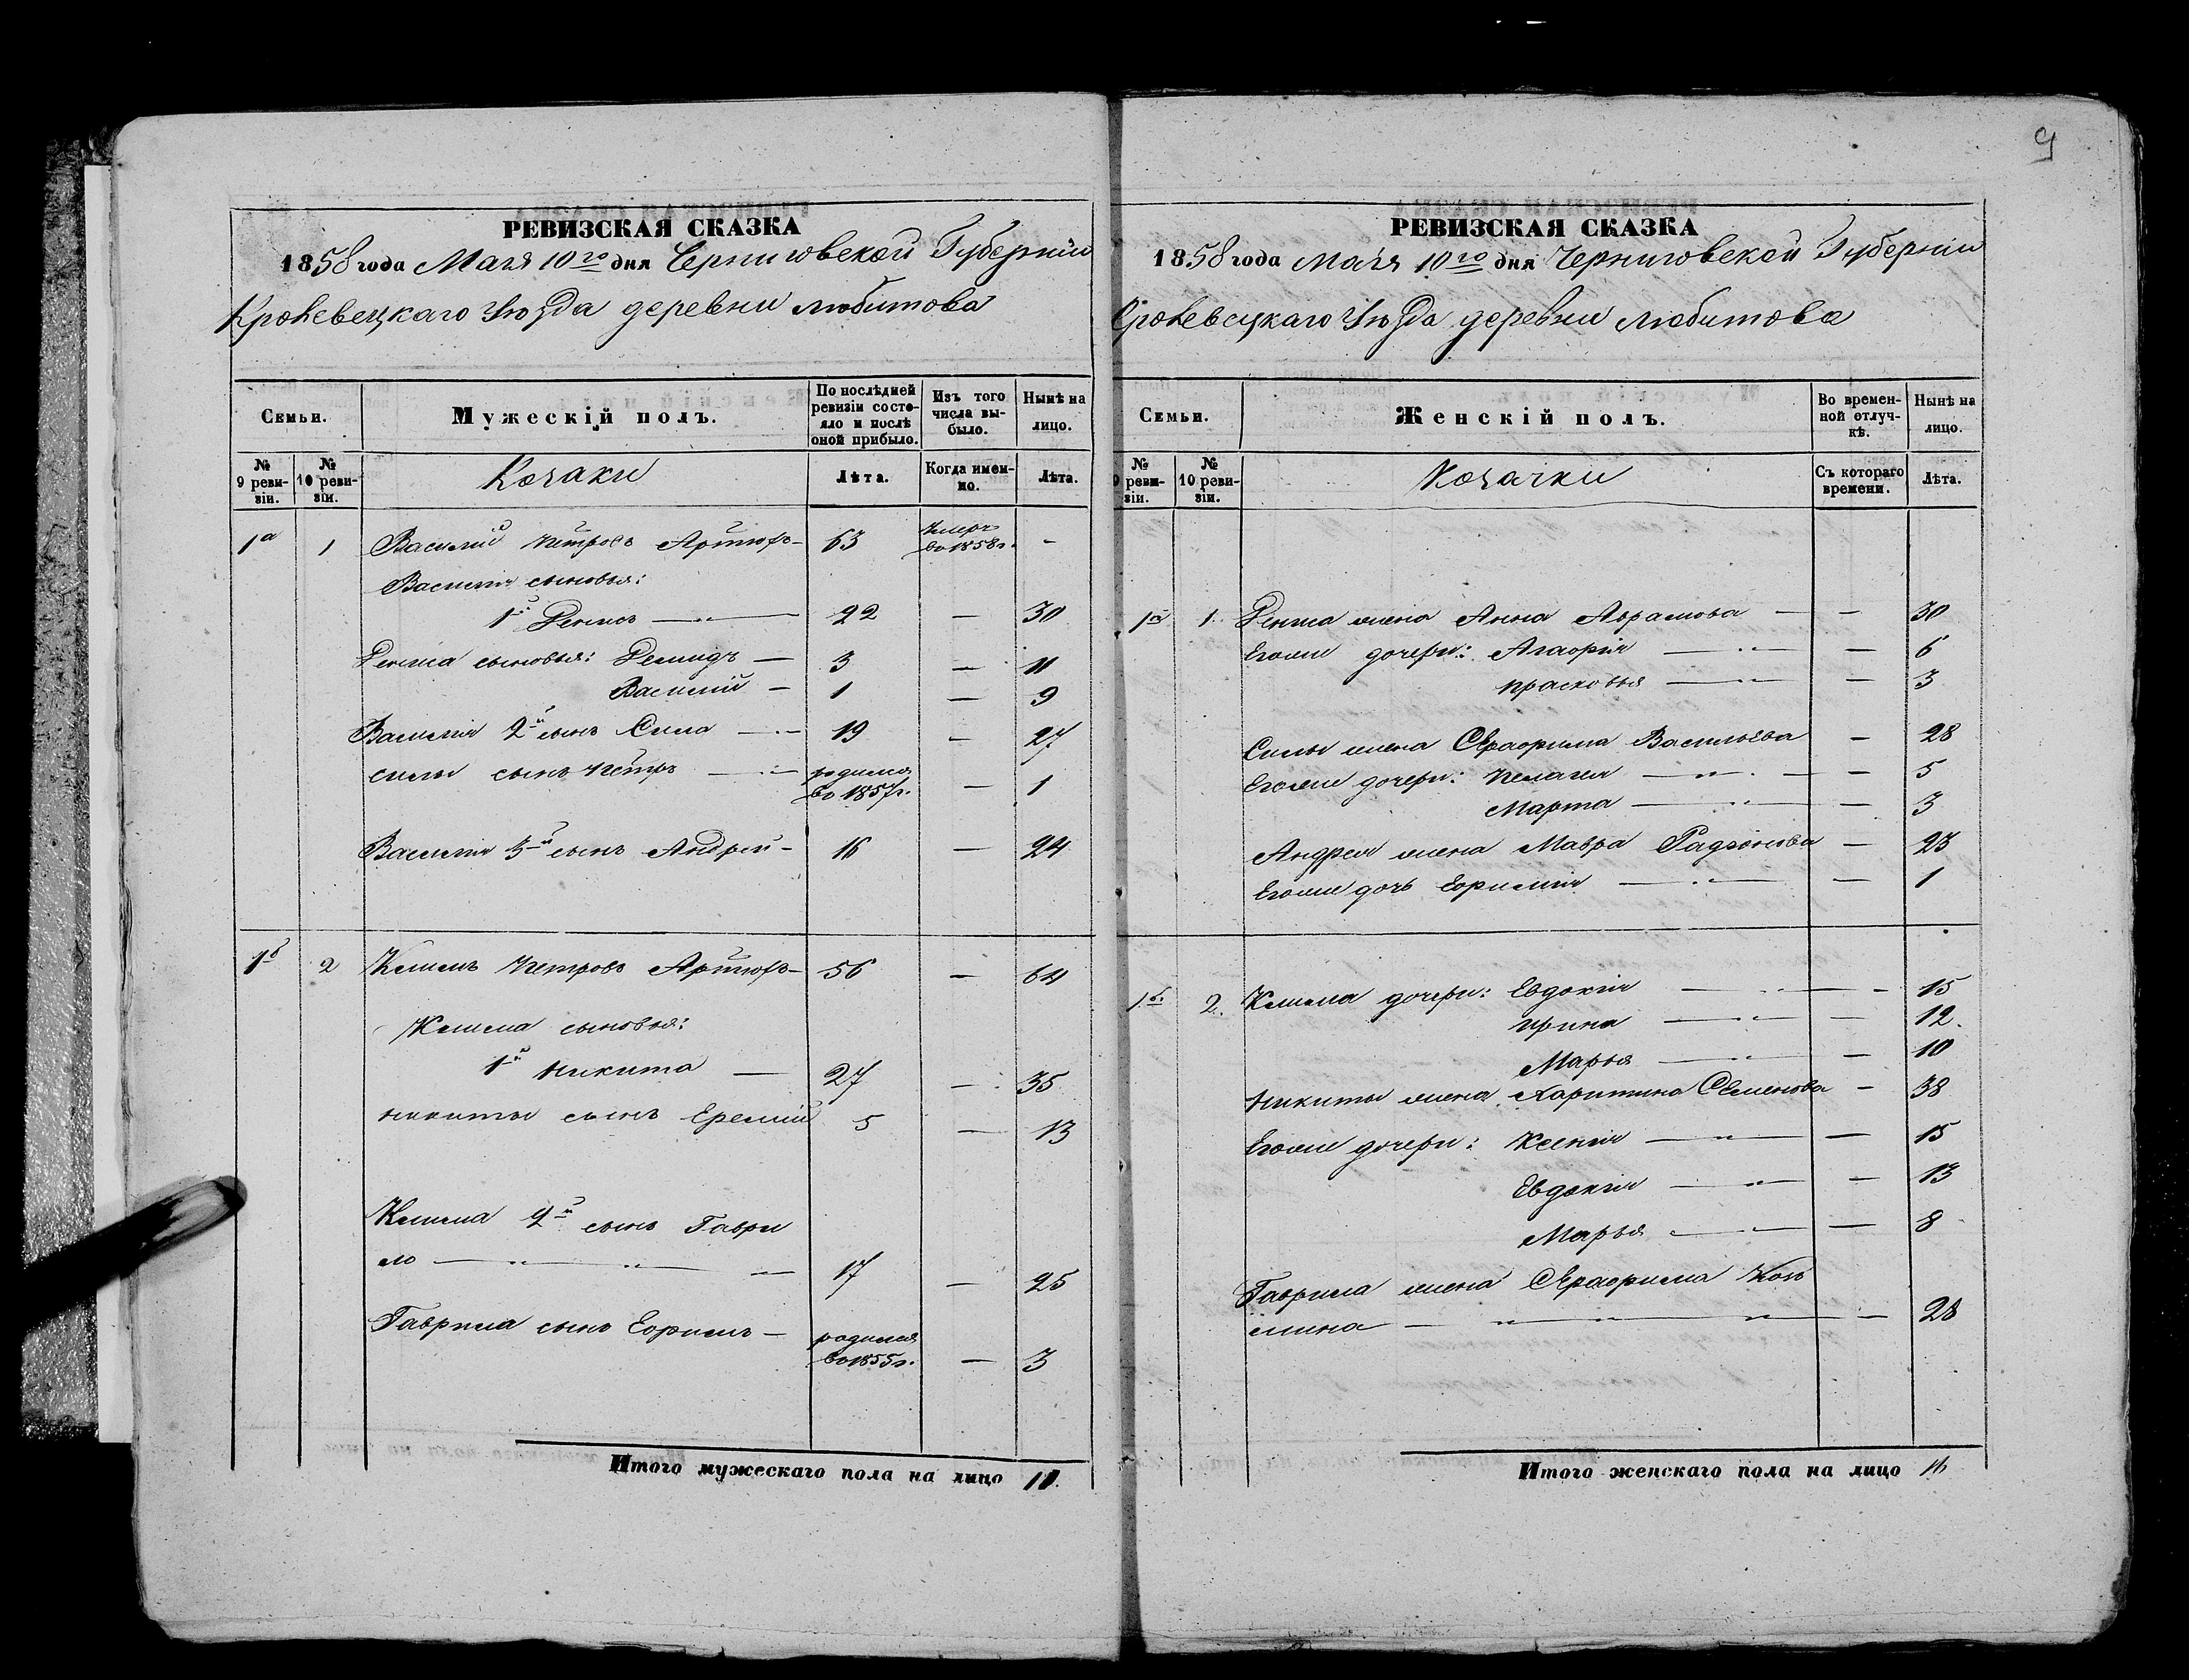 9
РЕВИЗСКАЯ СКАЗКА
1858 года Мая 10го дня Черниговской Губерніи
Кролевецкаго Уѣзда деревни Любитова
Семьи.
Мужескій полъ.
По послѣдней ревизіи состояло и послѣ оной прибыло.
Изъ того числа выбыло.
Нынѣ на лицо.
№ 9 ревизіи.
№ 10 ревизіи.
Козаки
Лѣта.
Когда именно.
Лѣта.
1а 1 Василій Петровъ 63 Умеръ во 1858г. –
Василія сыновья:
1й Денисъ — " — 22 — 30
Дениса сыновья: Демидъ — 3 — 11
Василій — 1 — 9
Василія 2й сынъ Сила — 19 — 27
Силы сынъ Петръ — родился во 1857г. — 1
Василія 3й сынъ Андрей – 16 — 24
1б 2 Климъ Петровъ 56 — 64
Клима сыновья:
1й Никита — 27 — 35
Никиты сынъ Еремій 5 — 13
Клима 2й сынъ Гаври
ло — " — " — 17 — 25
Гаврила сынъ Ефимъ — родился во 1855г. — 3
Итого мужескаго пола на лицо 11.
РЕВИЗСКАЯ СКАЗКА
1858 года Мая 10го дня Черниговской Губерніи
Кролевецкаго Уѣзда деревни Любитова
Семьи.
Женскій полъ.
Во временной отлучкѣ.
Нынѣ на лицо.
№ 9 ревизіи.
№ 10 ревизіи.
Козачки
Съ котораго времени.
Лѣта.
1а 1. Дениса жена Анна Аврамова — — 30
Егоже дочери: Агафія — " — — 6
Прасковья — " — — 3
Силы жена Серафима Васильева — 28
Егоже дочери: Пелагея — " — — 5
Марта — " — — 3
Андрея жена Мавра Радіонова — 23
Егоже дочь Ефимія — " — — 1
1б. 2. Клима дочери: Евдокія — " — — 15
Ирина — " — — 12.
Марья — " — — 10
Никиты жена Харитина Семенова — 38
Егоже дочери: Ксенія — " — — 15
Евдокія — " — — 13
Марья — " — — 8
Гаврила жена Серафима
мина — " — " — " — — 28
Итого женскаго пола на лицо 16